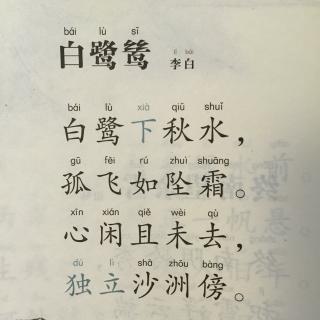 bái lù sī
白鹭鸶
lǐ bái
李白
bái lù xià qiū shuǐ
白鹭下秋水，
gū fēi rú zhuì shuāng
孤飞如坠霜。
xīn xián qiě wèi qù
心闲且未去，
dú lì shā zhōu bàng
独立沙洲傍。